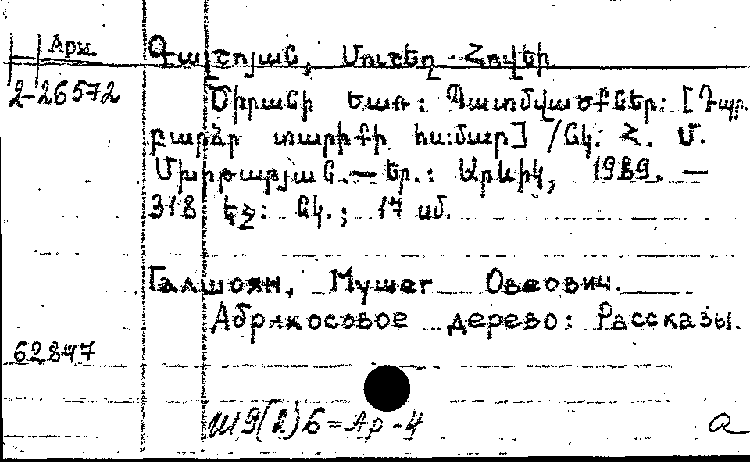 Арм.
2-26572
Գալշոյան, Մուշեղ Հովեի
Ծիրանի ծառ: Պատմվածքներ: [Դպր.
բարձր տարիքի համար] /Նկ. Հ. Մ.
Մխիթարյան.— Եր.: Արևիկ, 1989. —
318 էջ: նկ.; 17 սմ.
Галшоян, Мушег Овеович.
Абрикосовое дерево: Рассказы.
62847
Ш9(2)6=Ар-4
а